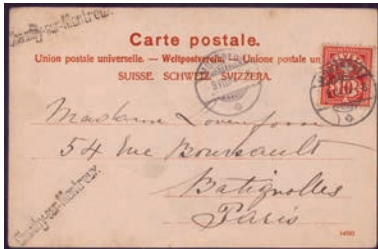 Chailly-sur-Montreux
Carte postale.
Union postale universelle. — Weltpostverein. — Unione postale un
SUISSE. SCHWEIZ. SVIZZERA.
10
Madame
54 Rue Boursault
Batignolles
Paris
Chailly-sur-Montreux